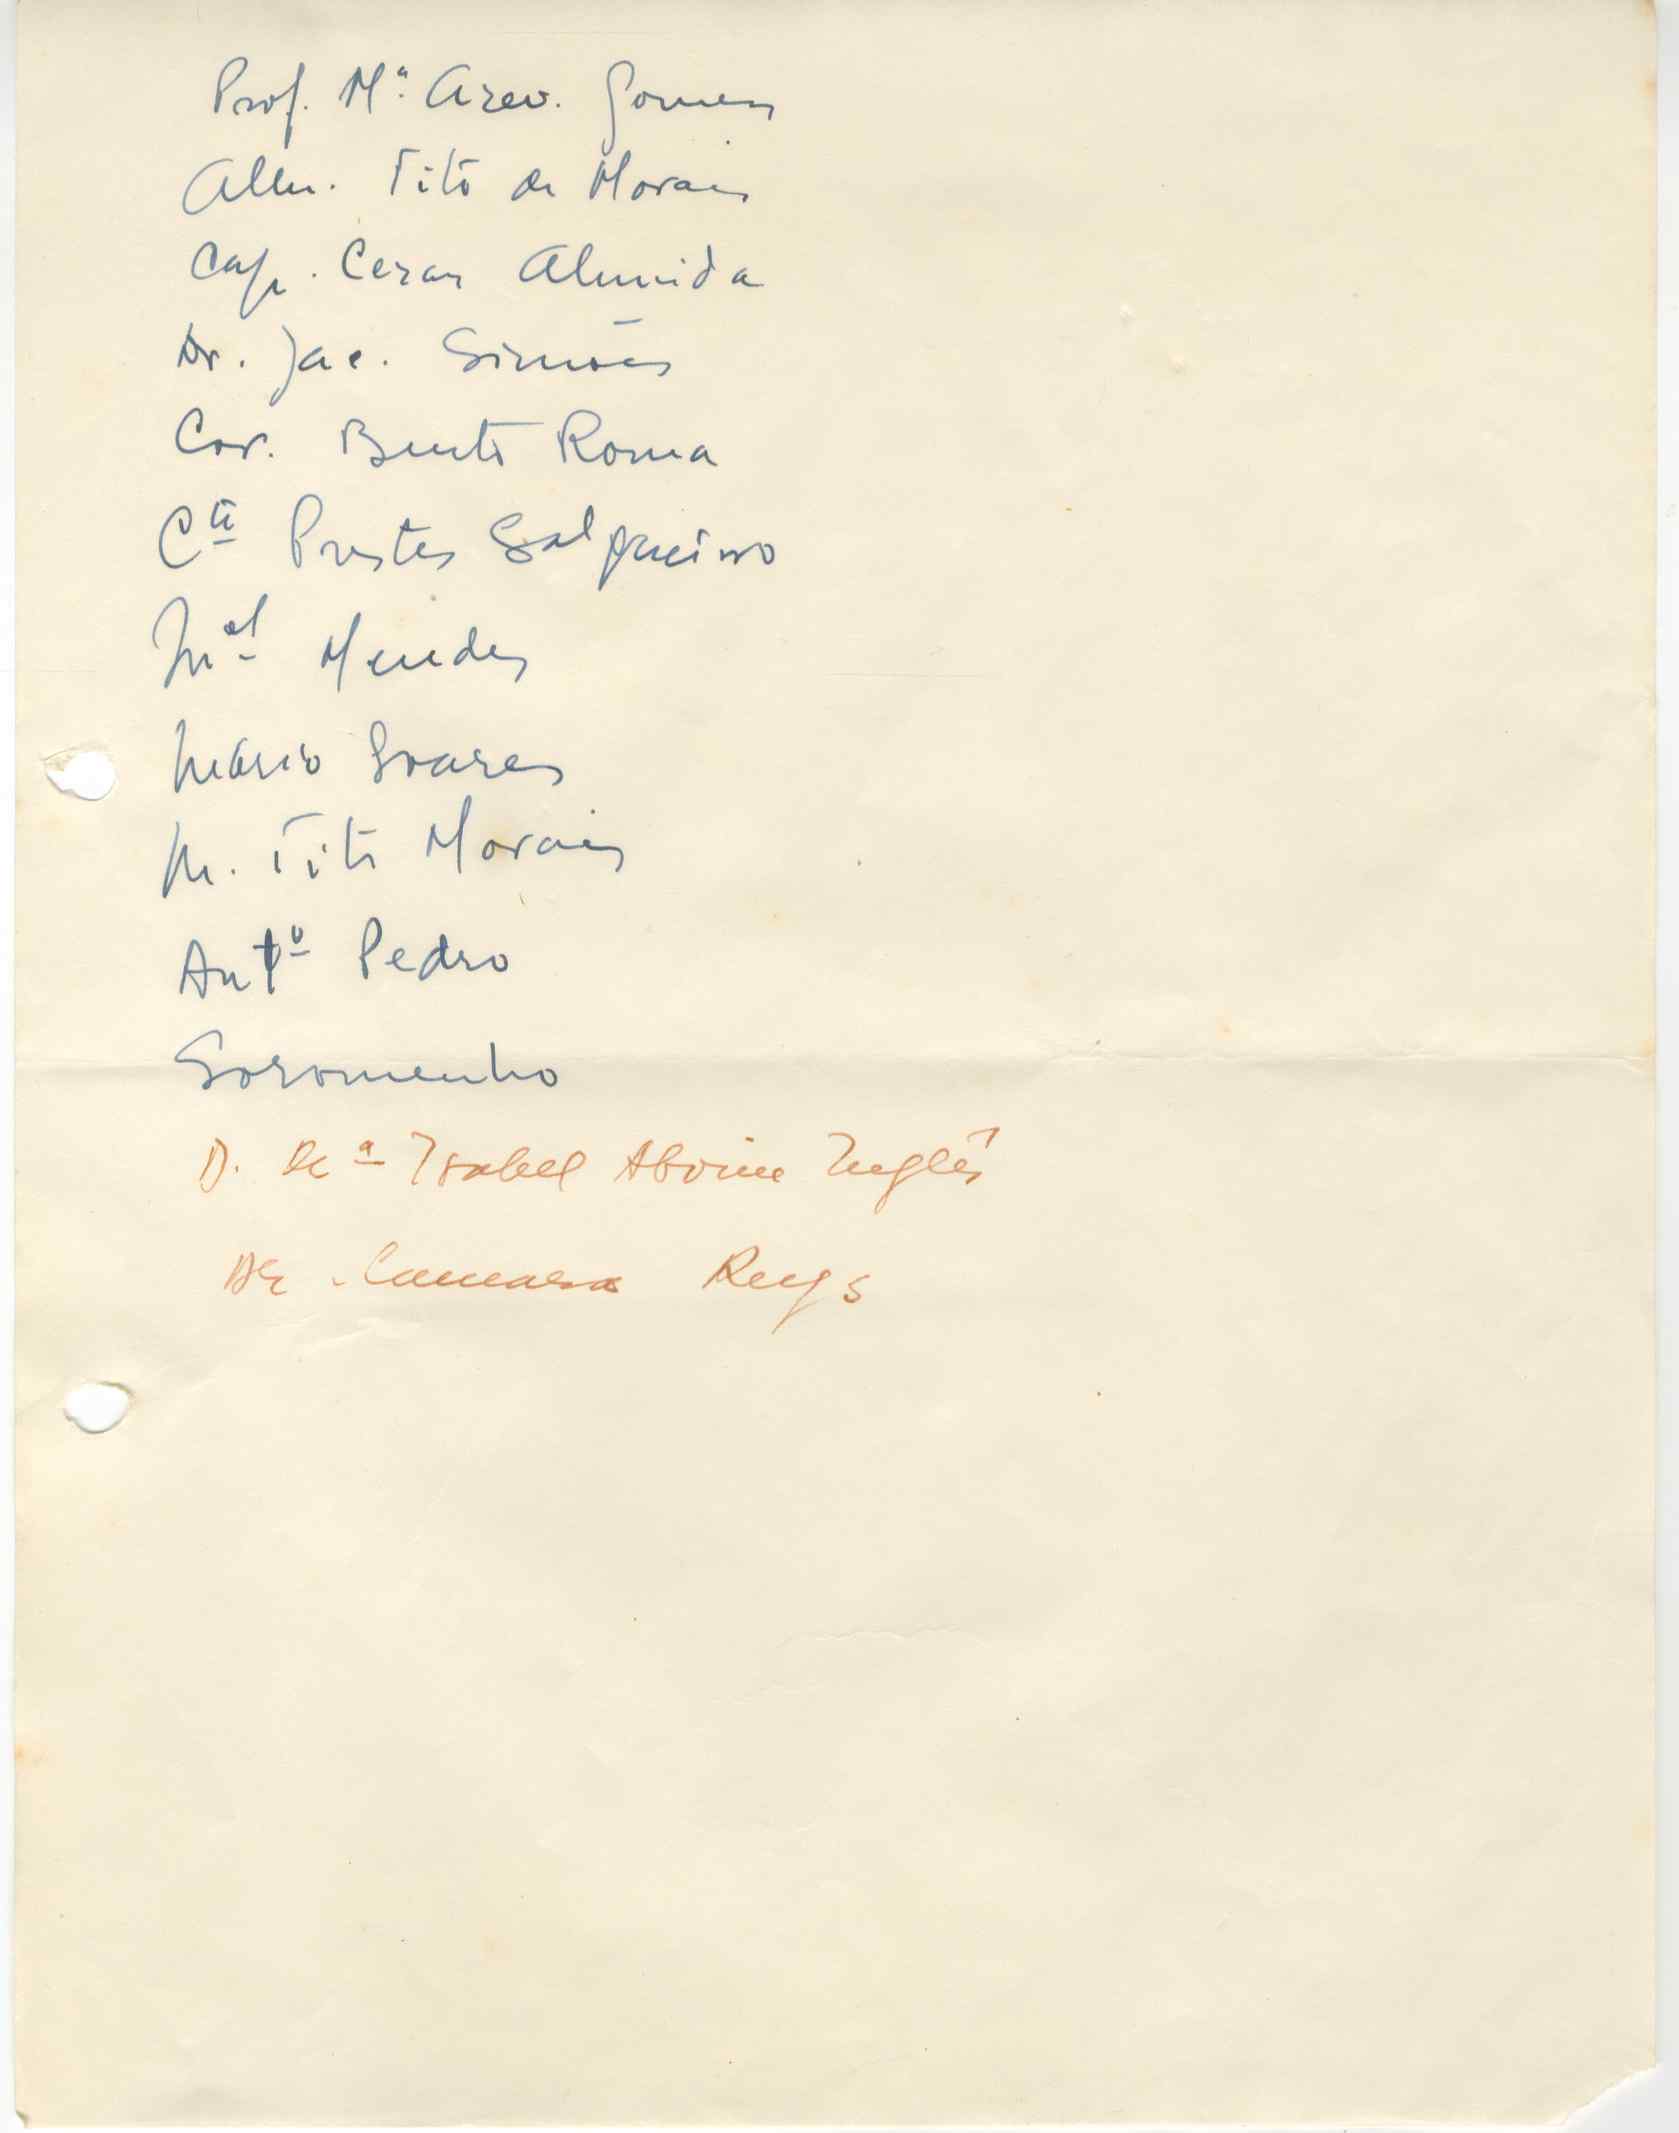 Prof. M.ª Azev. Gomes
Alm. Tito de Morais
Cap. Cezar Almeida
Dr. Jac. Simões
Cor. Bento Roma
Cte Prestes Salgueiro
Mel Mendes
Mário Soares
M. Tito Morais
Antº Pedro
Soromenho
D. Mª Isabel Aboim Inglês
Dr. Camara Reys